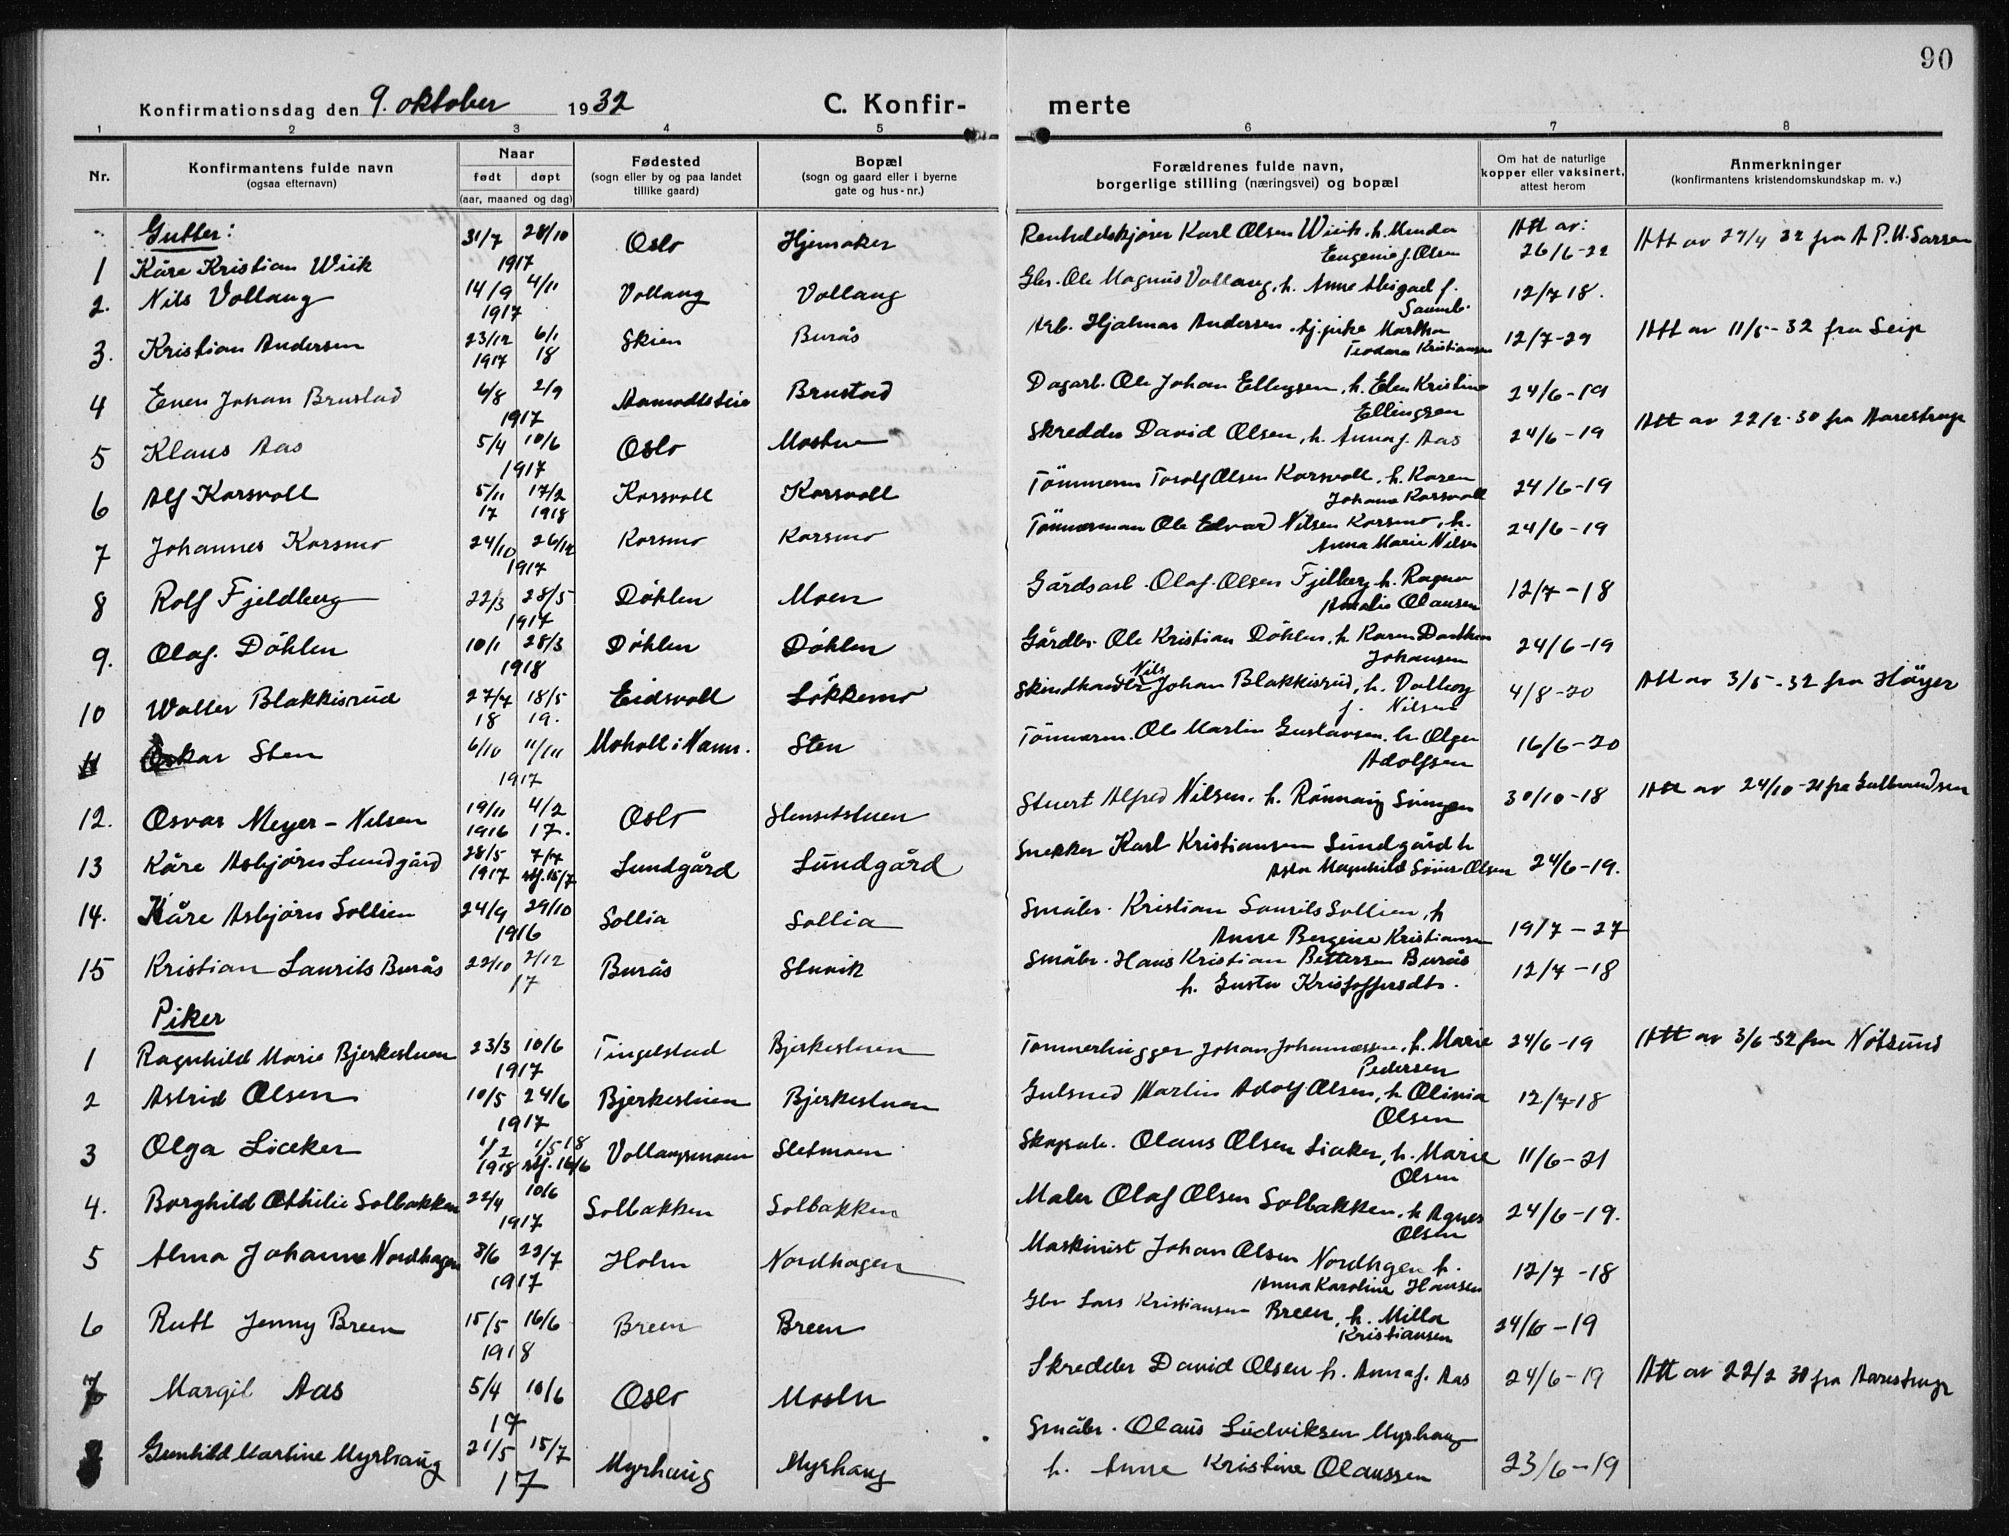 90
Konfirmationsdag den 9. oktober 1932 C. Konfir- merte
1 2 3 4 5 6 7 8
Nr. Konfirmantens fulde navn (ogsaa efternavn) Naar født døpt (aar, maaned og dag) Fødested (sogn eller by og paa landet tillike gaard) Bopæl (sogn og gaard eller i byerne gate og hus-nr.) Forældrenes fulde navn, borgerlige stilling (næringsvei) og bopæl Om hat de naturlige kopper eller vaksinert, attest herom Anmerkninger (konfirmantens kristendomskundskap m. v.)
Gutter:
1 Kåre Kristian Wiik 31/7 28/10 1917 Oslo Hjemaker Renholdskjører Karl Olsen Wiik, h. Eugenie f. Olsen Att av: 26/6-22 Att av 27/4 32 fra
2. Nils Vollaug 14/9 4/11 1917 Vollaug Vollaug Gbr. Ole Magnus Vollaug, h. Anne Abigael f. 12/7 18.
3. Kristian Andersen 23/12 1917 6/1 18 Skien Burås Arb. Hjalmar Andersen, Martha Teodora Kristiansen 12/7-29 Att av 11/5-32 fra Seip
4 Even Johan Brustad 6/8 2/9 1917 Brustad Dagarb. Ole Johan Ellingsen, h. Elen Kristine Ellingsen 24/6-19
5 Klaus Aas 5/4 10/6 1917 Oslo Skredder David Olsen, h. Anna f. Aas 24/6-19 Att av 22/2-30 fra Aarestrup
6 Alf Korsvoll 5/11 17 17/2 1918 Korsvoll Korsvoll Tømmerm Torolf Olsen Korsvoll, h. Karen Johanne Korsvoll 24/6-19
7 Johannes Korsmo 24/10 26/12 1917 Korsmo Korsmo Tømmerman Ole Edvard Nilsen Korsmo, h. Anna Marie Nilsen 24/6-19
8 Rolf Fjeldberg 22/3 28/5 1917 Döhlen Moen Gårdsarb. Olaf Olsen Fjelberg h. Ragna Amalie Olausen 12/7-18
9. Olaf Döhlen 10/1 28/3 1918 Döhlen Döhlen Gårdbr. Ole Kristian Döhlen, h. Karen Johansen 24/6-19
10 Walter Blakkisrud 27/7 18 18/5 19. Eidsvoll Løkkemo Skindhandler Nils Johan Blakkisrud, h. Valborg f. Nilsen 4/8-20 Att av 3/5-32 fra Höyer
11 Oskar Sten 6/10 11/11 1917 Moholt i Nann. Sten Tømmerm. Ole Martin Gustavsen, h. Olga Adolfsen 16/6-20
12. Osvar Meyer-Nilsen 19/11 1916 4/2 17. Oslo Stensetstuen Stuert Alfred Nilsen, h. Rønnaug Svingen 30/10-18 Att av 24/10-21 fra Gulbrandsen
13 Kåre Asbjørn Lundgård 28/5 1917 7/7 stf. 15/7 Lundgård Lundgård Snekker Karl Kristiansen Lundgård h Asta Magnhild Olsen 24/6-19.
14. Kåre Asbjørn Sollien 24/9 29/10 1916 Sollia Sollia Småbr. Kristian Laurits Sollien, h Anne Bergine Kristiansen 19/7-27
15 Kristian Laurits Burås 22/10 2/12 17 Burås Stuvik Småbr. Hans Kristian Pettersen Burås h. Gusta Kristoffersdtr. 12/7-18
Piker
1 Ragnhild Marie Bjerkestuen 23/3 10/6 1917 Tingelstad Bjerkestuen Tømmerhugger Johan Johannessen, h. Marie Pedersen 24/6-19 Att av 3/6-32 fra Nötsund
2 Astrid Olsen 10/5 24/6 1917 Bjerkestuen Bjerkestuen Gulsmed Martin Adolf Olsen, h. Olivia Olsen 12/7-18
3 Olga Liaker 1/2 1918 1/5 18 stf. 16/6 Vollaugsmoen Sletmoen Skogsarb. Olaus Olsen Liaker, h. Marie Olsen 11/6-21
4. Borghild Othilie Solbakken 22/4 10/6 1917 Solbakken Solbakken Maler Olaf Olsen Solbakken, h Agnes Olsen 24/6-19.
5 Alma Johanne Nordhagen 8/6 22/7 1917 Holm Nordhagen Maskinist Johan Olsen Nordhgen h. Anna Karoline Hansen 12/7-18
6 Rutt Jenny Breen 15/5 16/6 1918 Breen Breen Gbr Lars Kristiansen Breen, h. Milla Kristiansen 24/6-19
7 Margit Aas 5/4 10/6 17 Oslo Skredder David Olsen h. Anna f. Aas 24/6-19 Att av 22/2 30 fra Aarestrup
8 Gunhild Martine Myrhaug 21/5 15/7 17 Myrhaug Myrhaug Småbr. Olaus Ludviksen Myrhaug h. Anne Kristine Olaussen 23/6-19